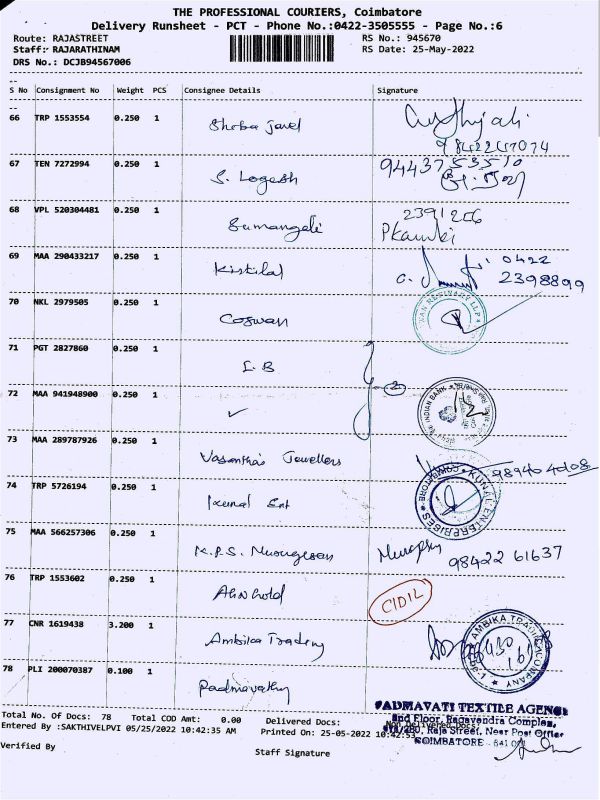 THE PROFESSIONAL COURIERS, Coimbatore
Delivery Runsheet - PCT - Phone No.:0422-3505555 - Page No.:6
Route: RAJASTREET RS No.: 945670
Staff: RAJARATHINAM RS Date: 25-May-2022
DRS No.: DCJB94567006
S No Consignment No Weight PCS Consignee Details Signature
66 TRP 1553554 0.250 1
67 TEN 7272994 0.250 1 S. Logesh 9443753510
68 VPL 520304481 0.250 1 Sumangali 2391266
69 MAA 290433217 0.250 1 Kistilal 0422
2398899
70 NKL 2979505 0.250 1 Coswan
71 PGT 2827860 0.250 1 I.B
72 MAA 941948900 0.250 1 ✓ INDIAN BANK
73 MAA 289787926 0.250 1 Vasantha's Jewellers
74 TRP 5726194 0.250 1 Kunal Ent KUNAL ENTERPRISES COIMBATORE
75 MAA 566257306 0.250 1 K.P.S. Murugesan 98422 61637
76 TRP 1553602 0.250 1
77 CNR 1619438 3.200 1 Ambika Trading AMBIKA TRADING COMPANY
78 PLI 200070387 0.100 1 Padmavathy
PADMAVATI TEXTILE AGENC
2nd Floor, Ragavendra Complex,
Raja Street, Near Post Office
COIMBATORE - 641 001
Total No. Of Docs: 78 Total COD Amt: 0.00 Delivered Docs: Non Delivered Docs:
Entered By :SAKTHIVELPVI 05/25/2022 10:42:35 AM Printed On: 25-05-2022 10:42:53
Verified By Staff Signature